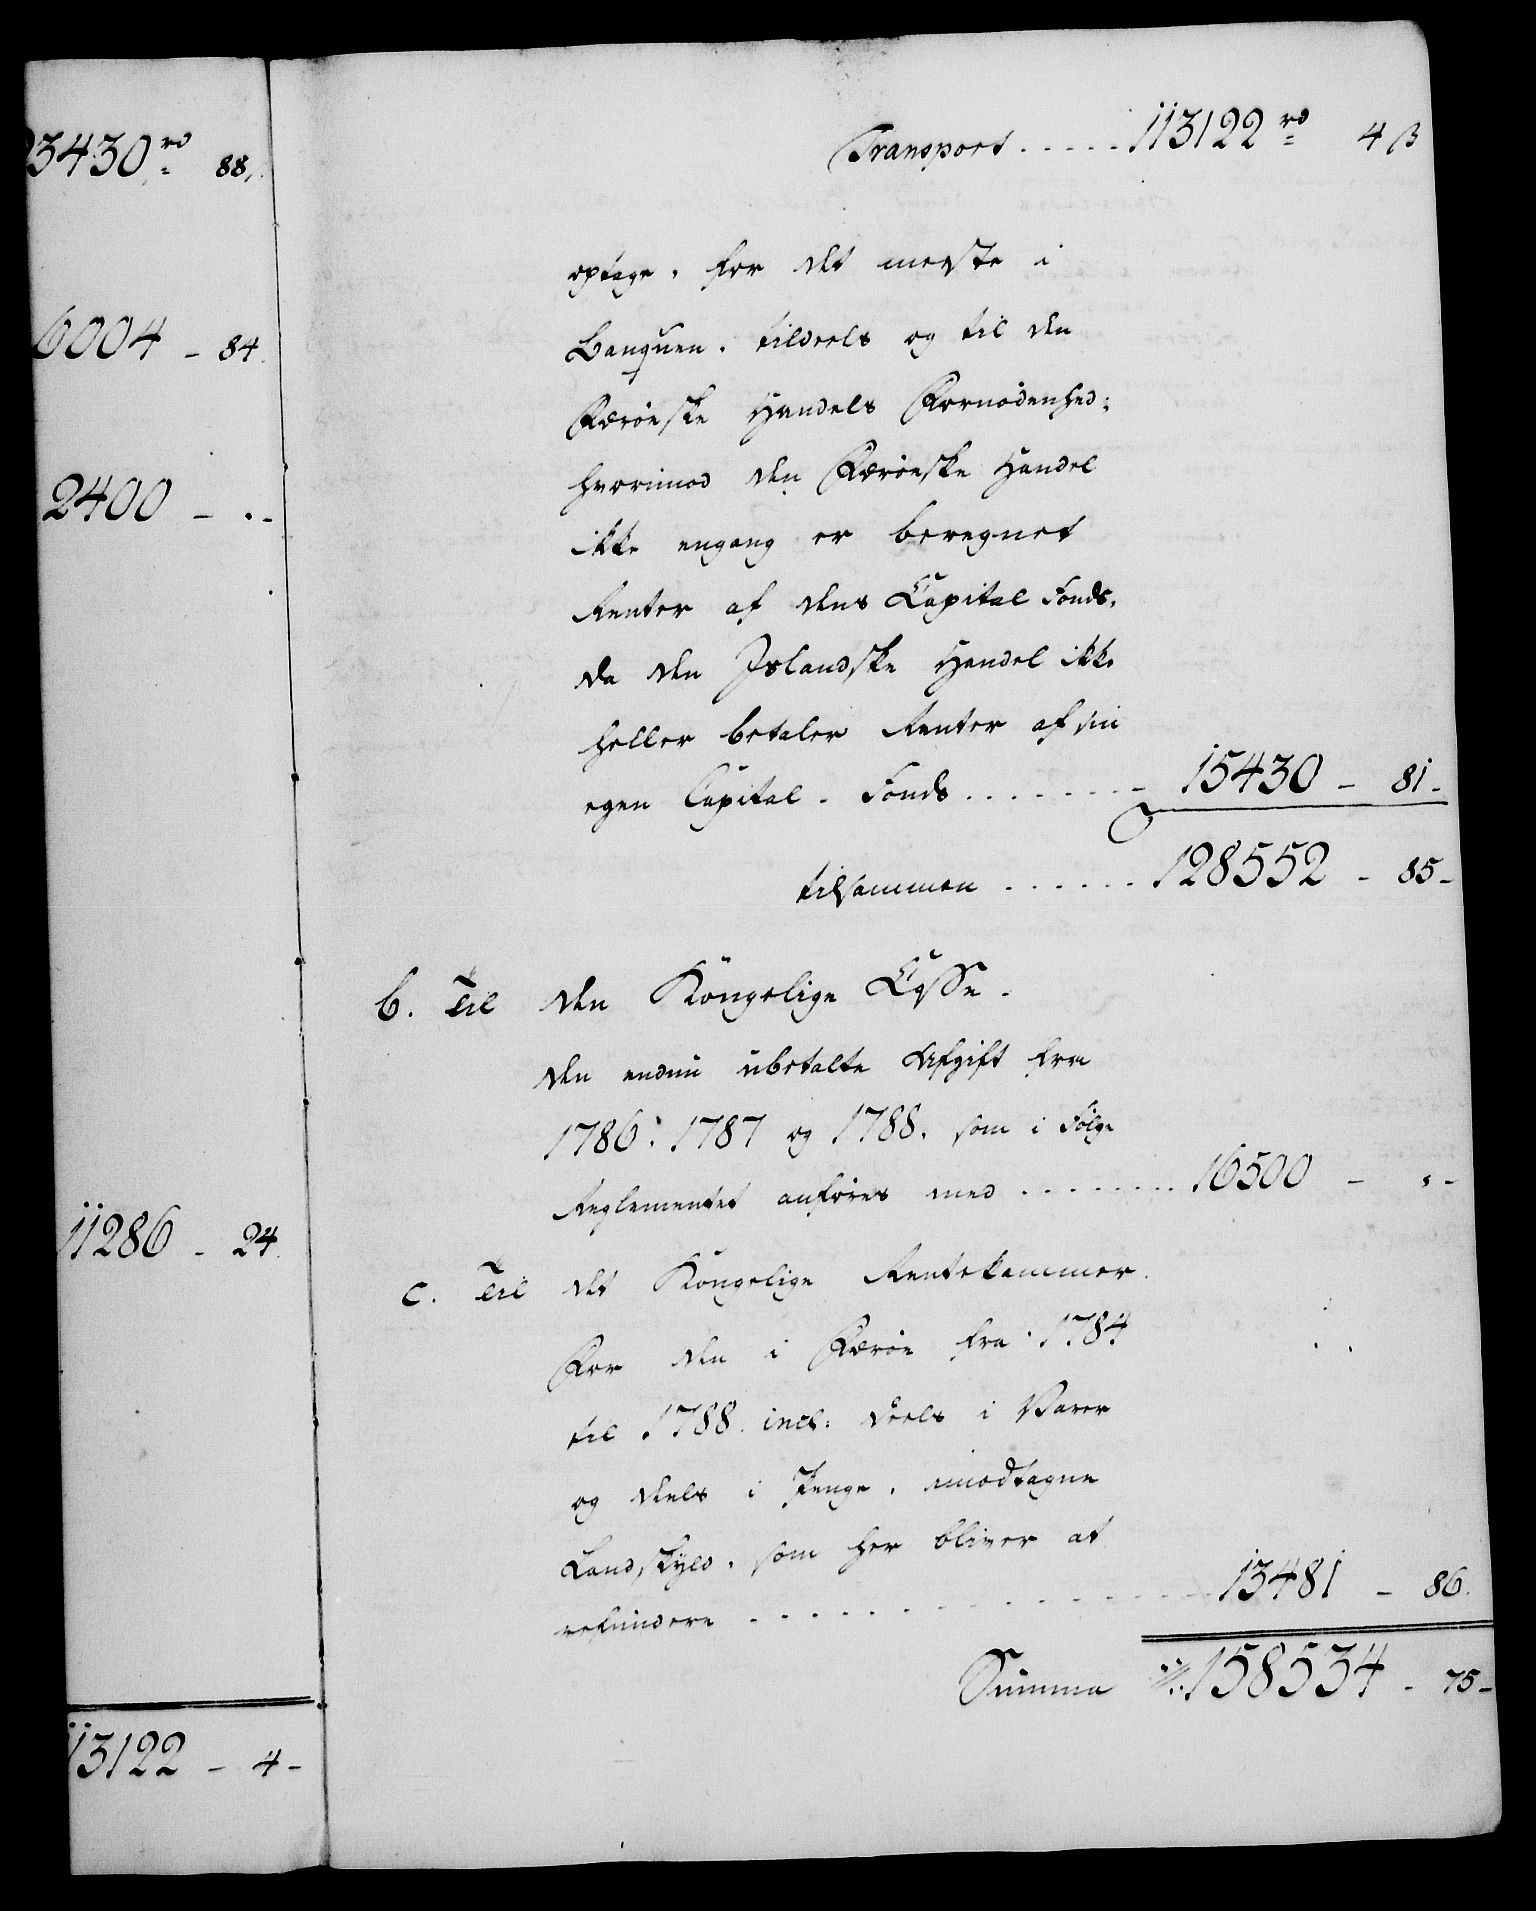 3430 rd 88
6004 - 84.
2400 - . -
11286 - 24.
113122 - 4 -
Transport ..... 113122 rd 4 ß
optage, for det meste i
Banquen, tildeels og til den
Færöeske Handels Fornødenhed;
hvorimod den Færöeske Handel
ikke engang er beregnet
Renter af dens Capital Fonds,
da den Islandske Handel ikke
heller betaler Renter af sin
egen Capital-Fonds ....... 15430 - 81 -
tilsammen ...... 128552 - 85 -
b. Til den Kongelige Casse.
den endnu ubetalte Afgift fra
1786, 1787 og 1788, som i Følge
Reglementet anføres med ........ 16500 - " -
c. Til det Kongelige Rentekammer.
For den i Færöe fra 1784
til 1788 incl: deels i Varer
og deels i Penge, modtagne
Landskyld, som her bliver at
refundere ................ 13481 - 86.
Summa 158534 - 75 -